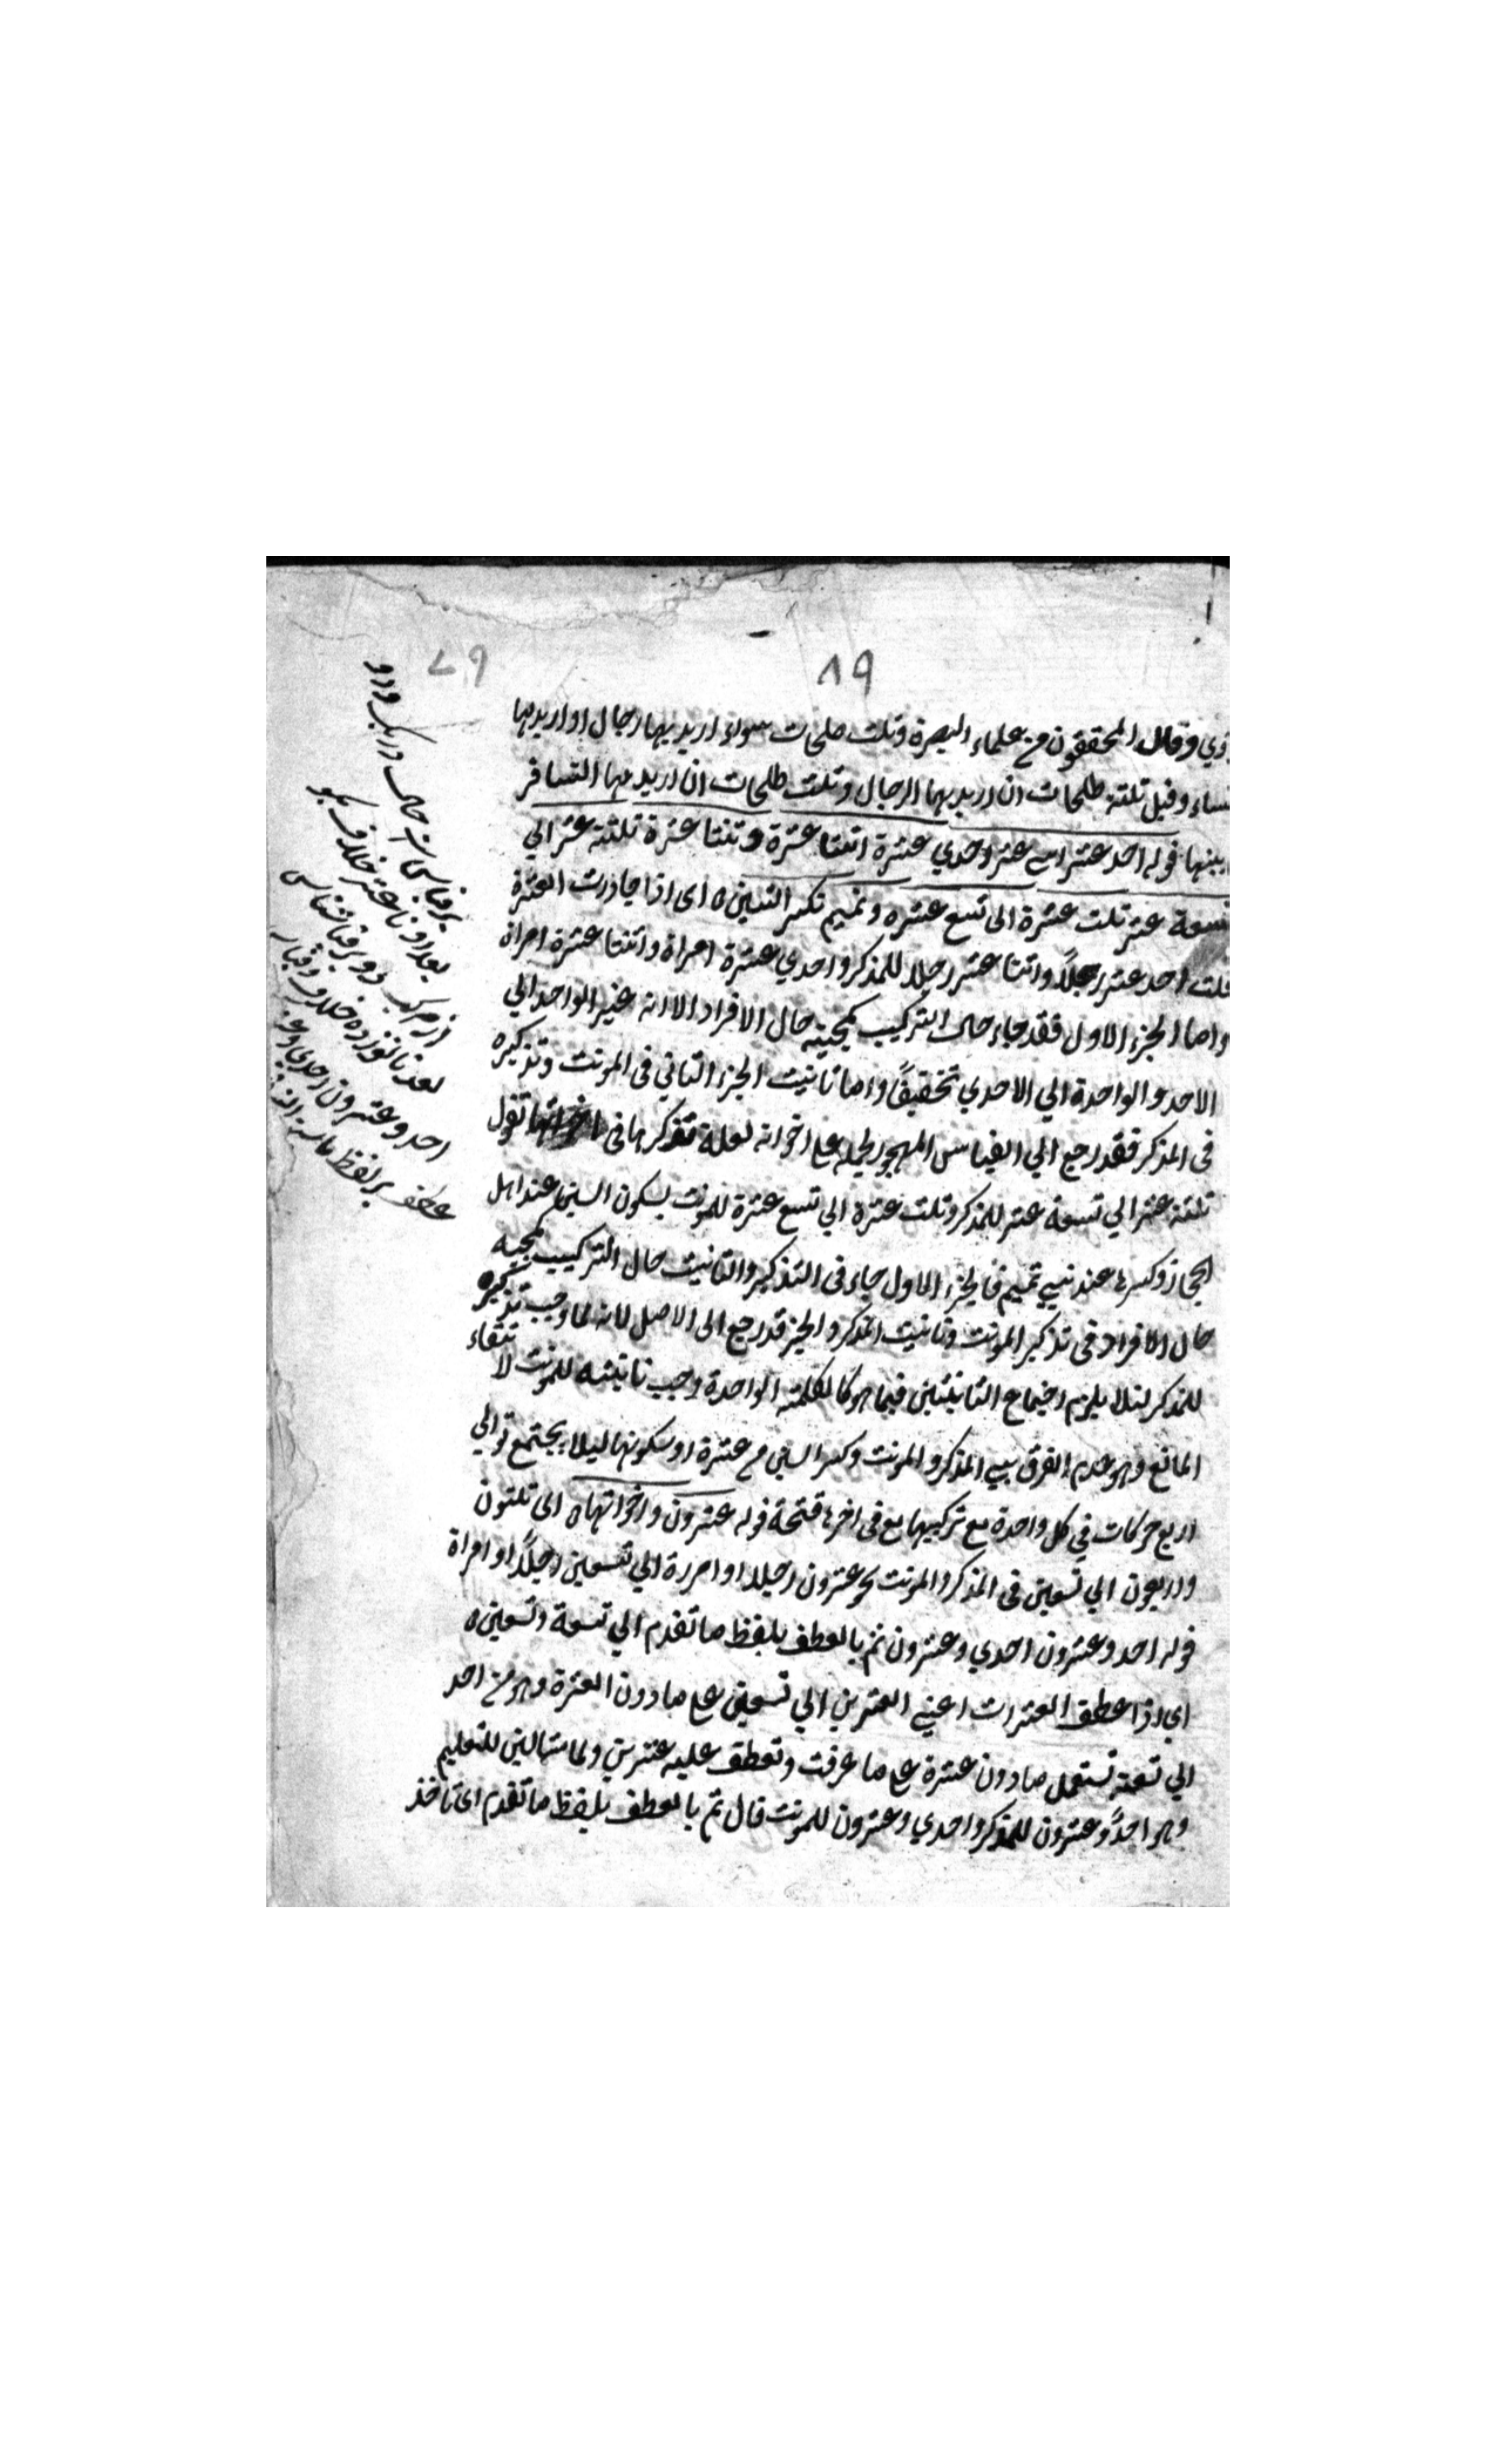 ٨٩
٧٩
وقال المحققون من علماء البصرة وثلث طلحات سواء اريد بها رجال او اريد بها
نساء وقيل ثلثة طلحات ان اريد بها الرجال وثلث طلحات ان اريد بها النسا
قوله احد عشر اثنا عشر احدي عشرة اثنتا عشرة وثنتا عشرة ثلثة عشر الي
تسعة عشر ثلث عشرة الى تسع عشره وتميم تكسر الشين ه اى اذا جاوزت العشرة
قلت احد عشر رجلاً واثنا عشر رجلا للمذكر واحدي عشرة امراة واثنتا عشرة امراة
واما الجزء الاول فقد جاء حال التركيب كمجيئه حال الافراد الا انه غير الواحد الي
الاحد والواحدة الي الاحدي تخفيفاً واما تانيث الجزء الثاني في المونث وتذكيره
في المذكر فقد رجع الي القياس المهجور لحمله على اخواته لعلة تقول
ثلثة عشر الي تسعة عشر للمذكر وثلث عشرة الي تسع عشرة للمونث بسكون الشين عند اهل
الحجاز وكسرها عند بني تميم فالجزء الاول جاء في التذكير والتانيث حال التركيب كمجيه
حال الافراد في تذكير المونث وتانيث المذكر والجز قد رجع الى الاصل لانه لما وجب تذكيره
للمذكر لئلا يلزم اجتماع التانيثين فيما هو كالكلمة الواحدة وجب تانيثه للمونث لا نتفاء
المانع وهو عدم الفرق بين المذكر والمونث وكسر الشين من عشرة او سكونها ليلا يجتمع توالي
اربع حركات في كل واحدة مع تركيبها مع في اخرها فتحة قوله عشرون واخواتها ه الى ثلثون
واربعون الي تسعين في المذكر والمونث نحو عشرون رجلا او امرءة الي تسعين رجلاً او امراة
قوله احد وعشرون احدي وعشرون ثم بالعطف بلفظ ما تقدم الي تسعة وتسعين ه
اى اذا عطف العشرات اعني العشرين الي تسعين على ما دون العشرة وهو من احد
الي تسعة تستعمل ما دون عشرة على ما عرفت وتعطف عليه عشرين ولما مثالين للتعليم
وهو احدٌ وعشرون للمذكر واحدي وعشرون للمونث قال ثم بالعطف بلفظ ما تقدم اى تاخذ
در يك ودو
بر قياس است
بعد او تا عشر خلاف
بر قياس
بعد تا نوزده خلاف
احد وعشرون احدي
عطف بر لفظ